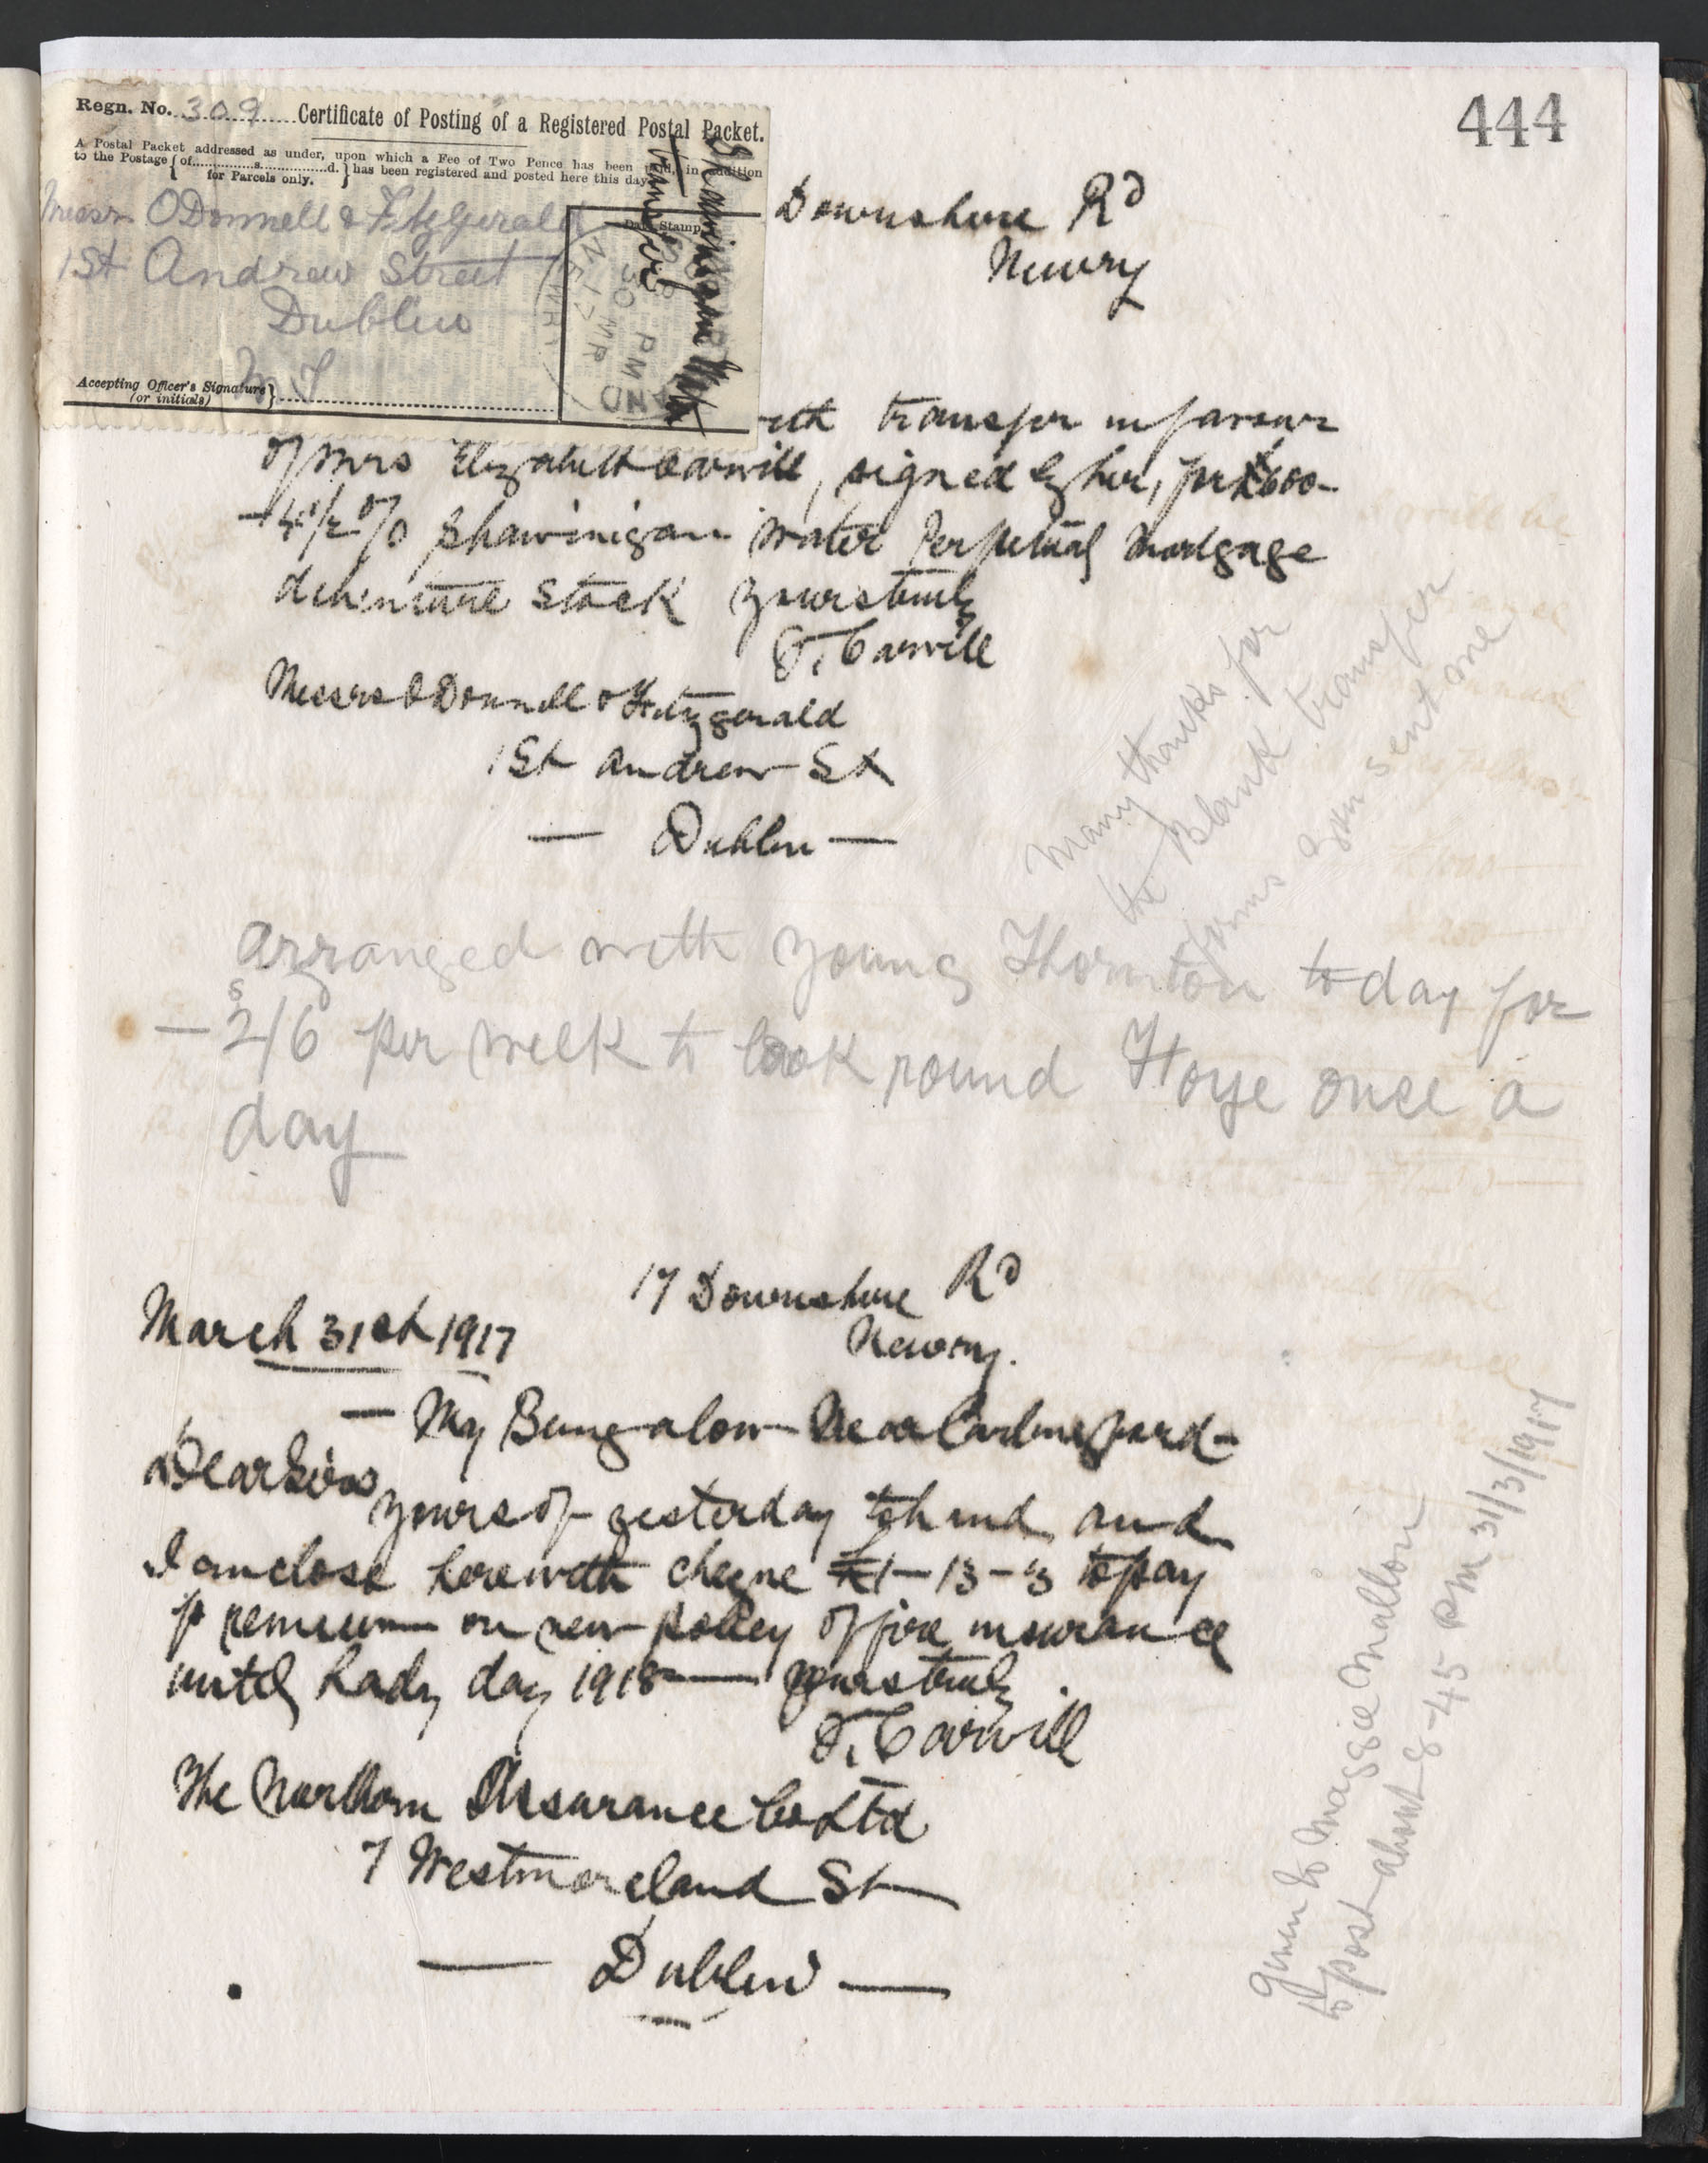 444
Regn. No. 309 Certificate of Posting of a Registered Postal Packet.
A Postal Packet addressed as under, upon which a Fee of Two Pence has been paid, in addition
to the Postage { of............s............d. } has been registered and posted here this day.
for Parcels only.
Messrs O'Donnell & Fitzgerald
1 St Andrew Street
Dublin
Date Stamp
NEWRY
30 MR
17
Accepting Officer's Signature }
(or initials)
Shawinigan Water
transfer
Downshire Rd
Newry
with transfer in favour
of Mrs Elizabeth Carvill, signed by her, for £600-
- 4 1/2 % Shawinigan Water Perpetual Mortgage
debenture Stock Yours truly
F. Carvill
Messrs O'Donnell & Fitzgerald
1 St Andrew St
— Dublin —
Many thanks for
the Blank transfer
forms you sent me
arranged with young Thornton to day for
— 2s/6 per week to look round Hoye once a
day
17 Downshire Rd
Newry.
March 31st 1917
— My Bungalow Near Carlingford —
Dear Sirs
Yours of yesterday to hand and
I enclose herewith cheque £1-13-3 to pay
premium on new policy of fire insurance
until Lady day 1918 — yours truly
F. Carvill
The Northern Assurance Co Ltd
7 Westmoreland St
— Dublin —
given to Maggie Mallon
to post about 8-45 PM 31/3/1917